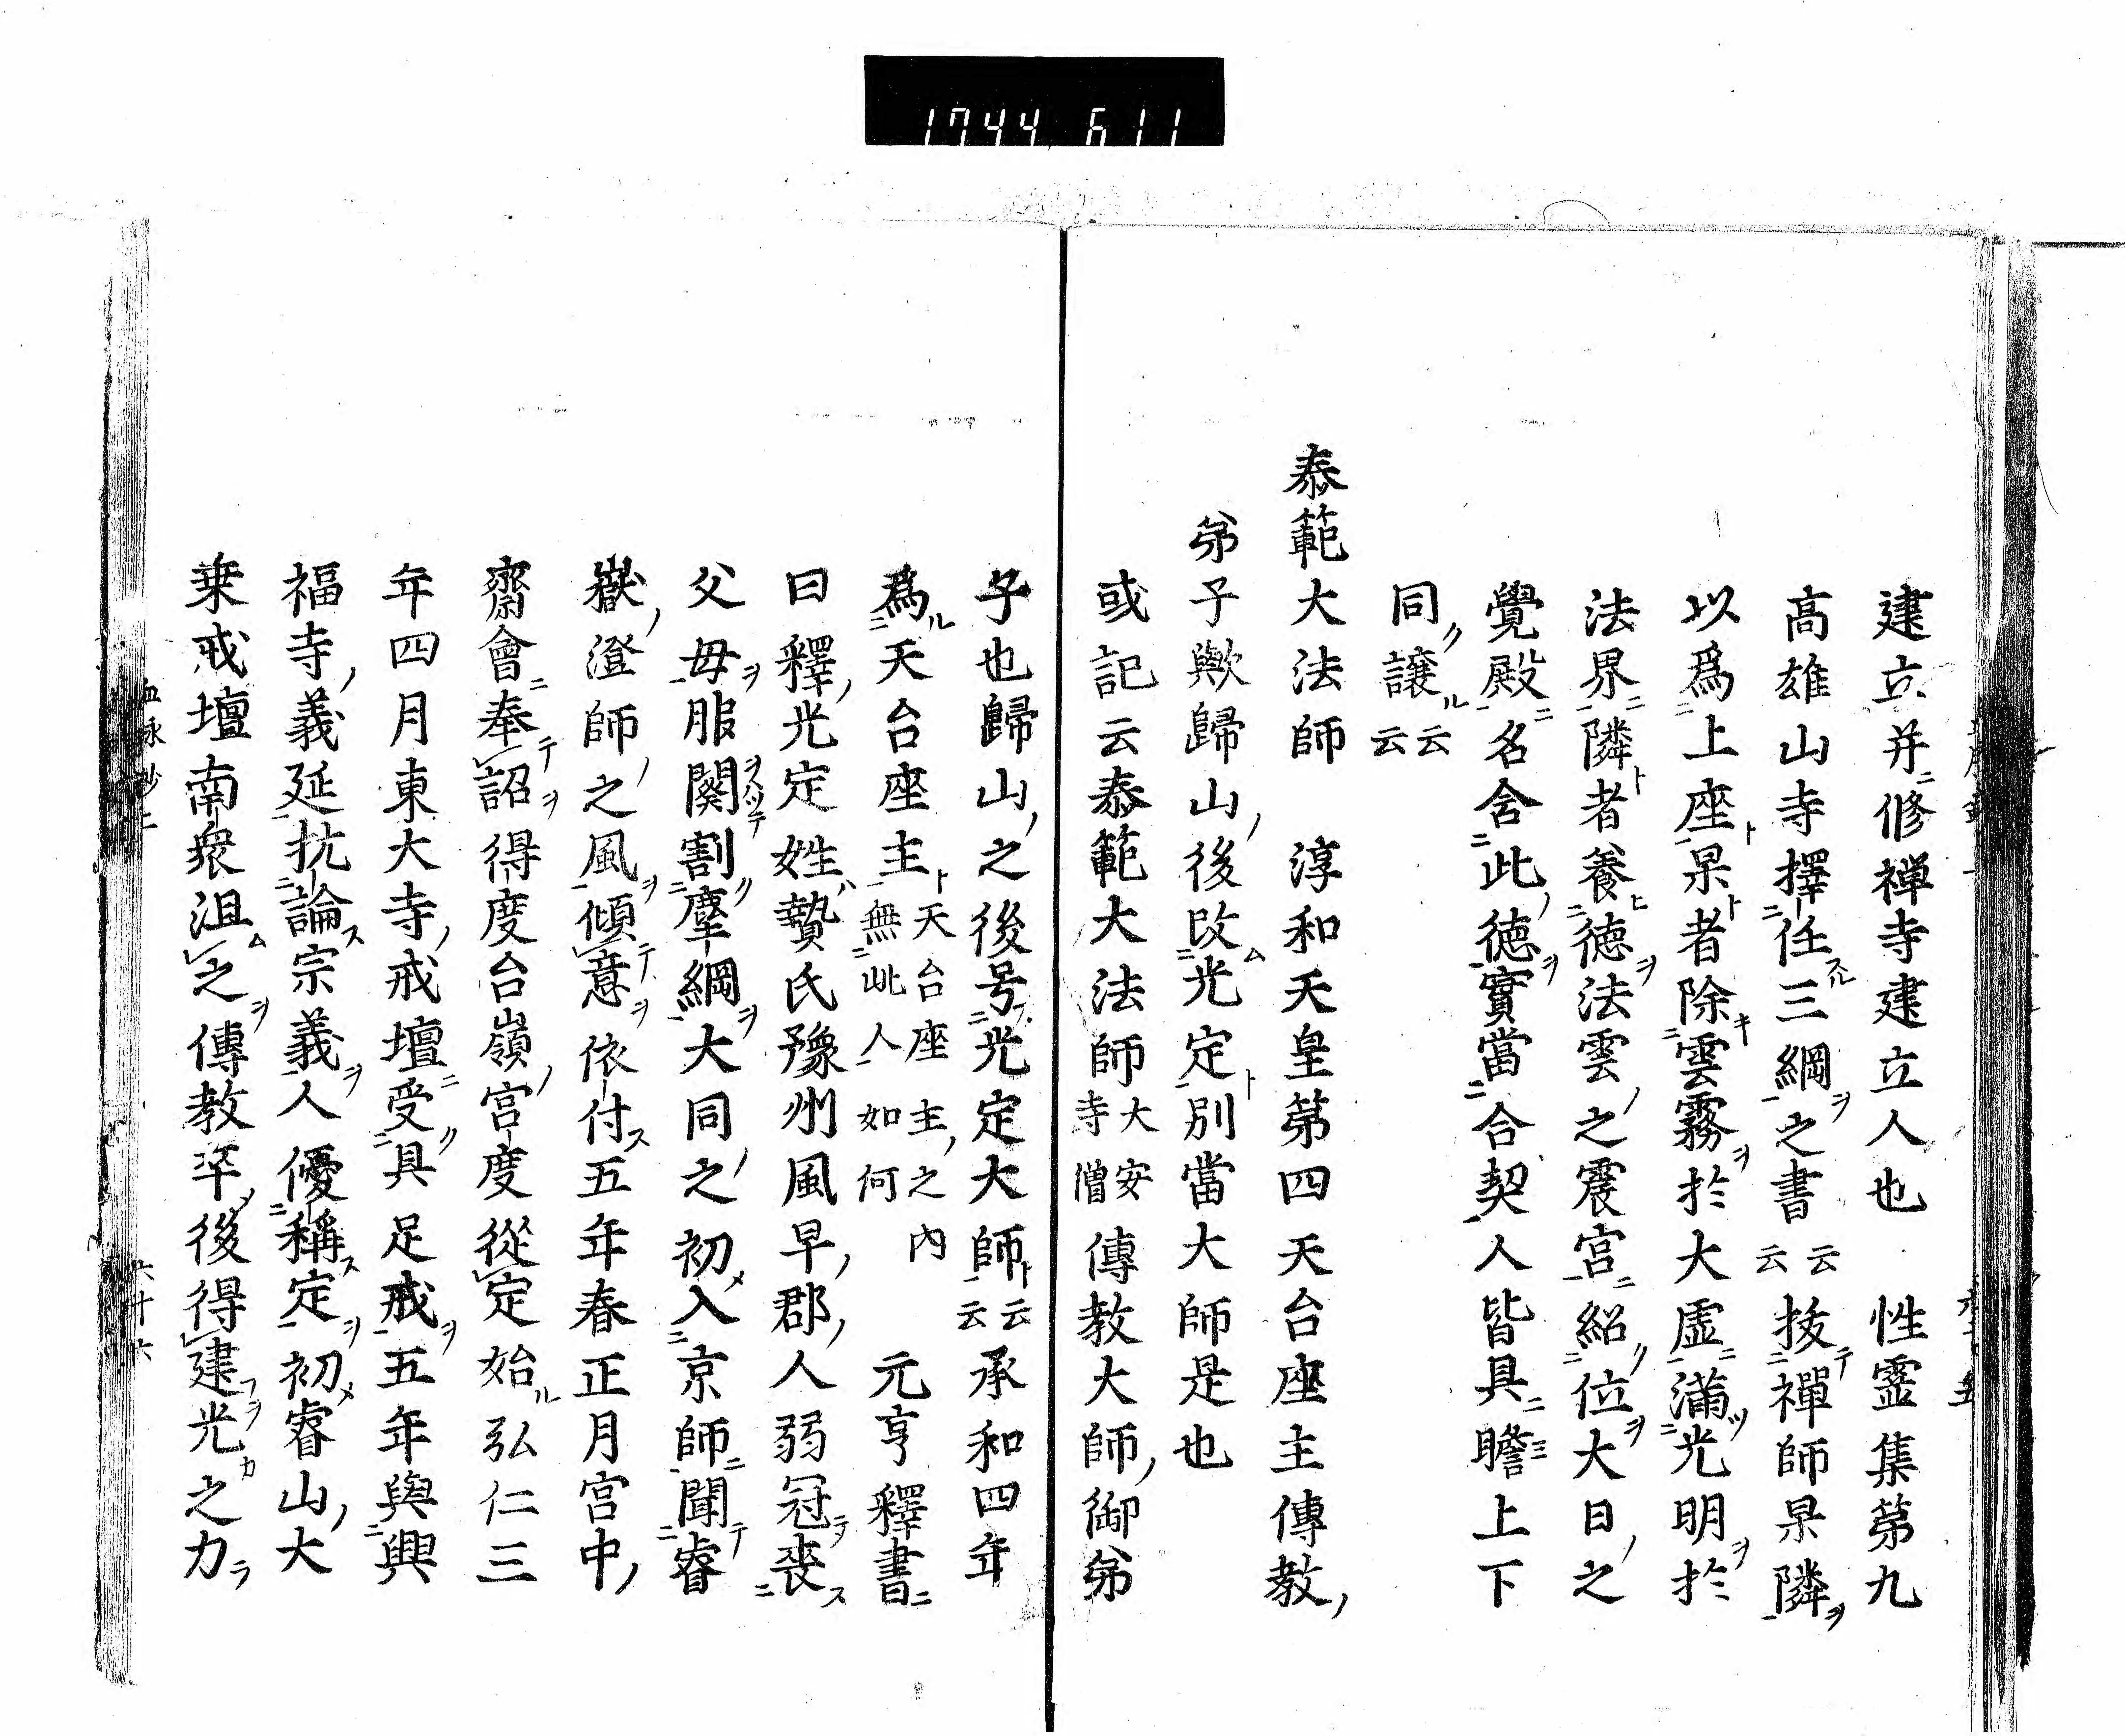 1744 611
建立并修禅寺建立人也 性霊集第九
高雄山寺擇任三綱之書云云 抜禪師杲隣
以爲上座杲者除雲霧於大虚滿光明於
法界隣者養徳法雲之震宮紹位大日之
覺殿名舍此徳實當合契人皆具瞻上下
同讓云云
泰範大法師 淳和天皇第四天台座主傳教
弟子歟歸山後改光定別當大師是也
或記云泰範大法師大安寺僧傳教大師御弟
子也歸山之後号光定大師云云承和四年
爲天台座主天台座主之内無此人如何 元亨釋書
曰釋光定姓贄氏豫州風早郡人弱冠喪
父母服闋割塵綱大同之初入京師聞睿
嶽澄師之風傾意依付五年春正月宮中
齋會奉詔得度台嶺宮度從定始弘仁三
年四月東大寺戒壇受具足戒五年與興
福寺義延抗論宗義人優稱定初睿山大
乗戒壇南衆沮之傳教卒後得建光之力
血脉鈔二
六十六